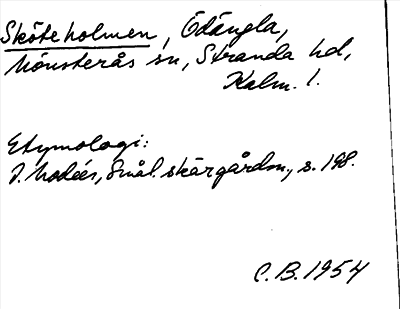 Sköteholmen, Ödängla,
Mönsterås sn, Stranda hd,
Kalm. l.
Etymologi:
J. Modéer, Smål. skärgårdsn., s. 198.
C.B. 1954